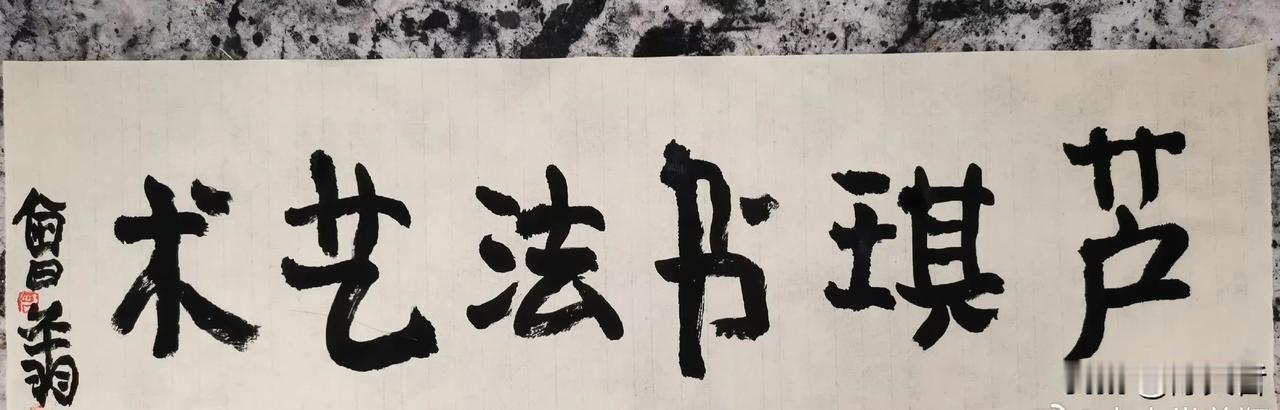 芦琪书法艺术
曾翔